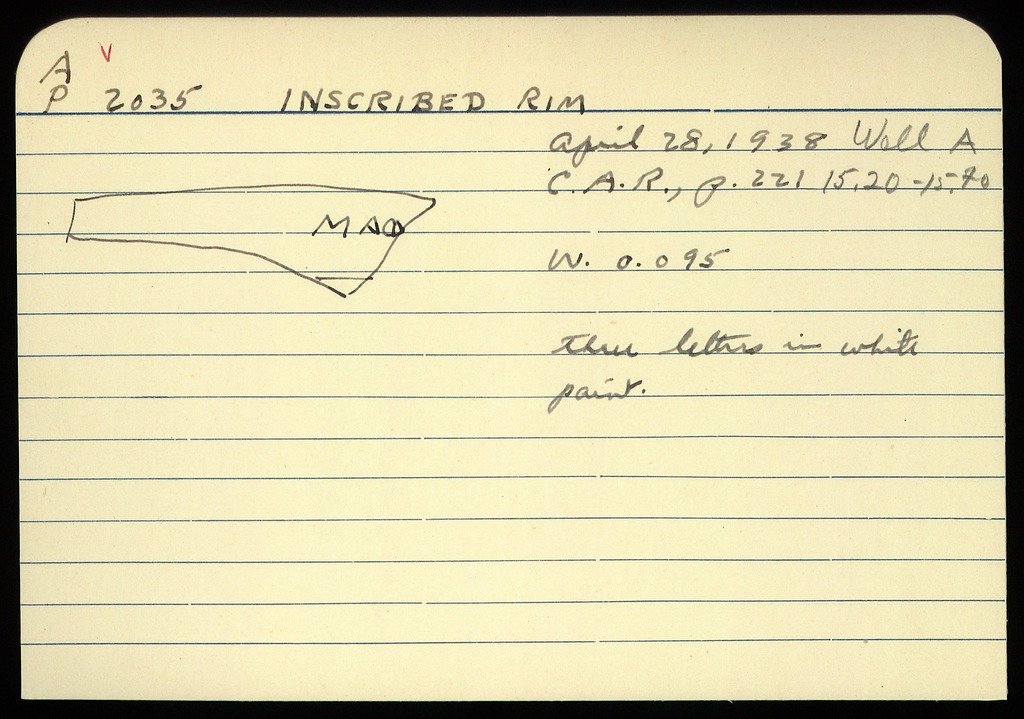 A V
P 2035 INSCRIBED RIM
April 28, 1938 Well A
C.A.R., p. 221 15.20-15.40
MAO
W. 0.095
three letters in white
paint.